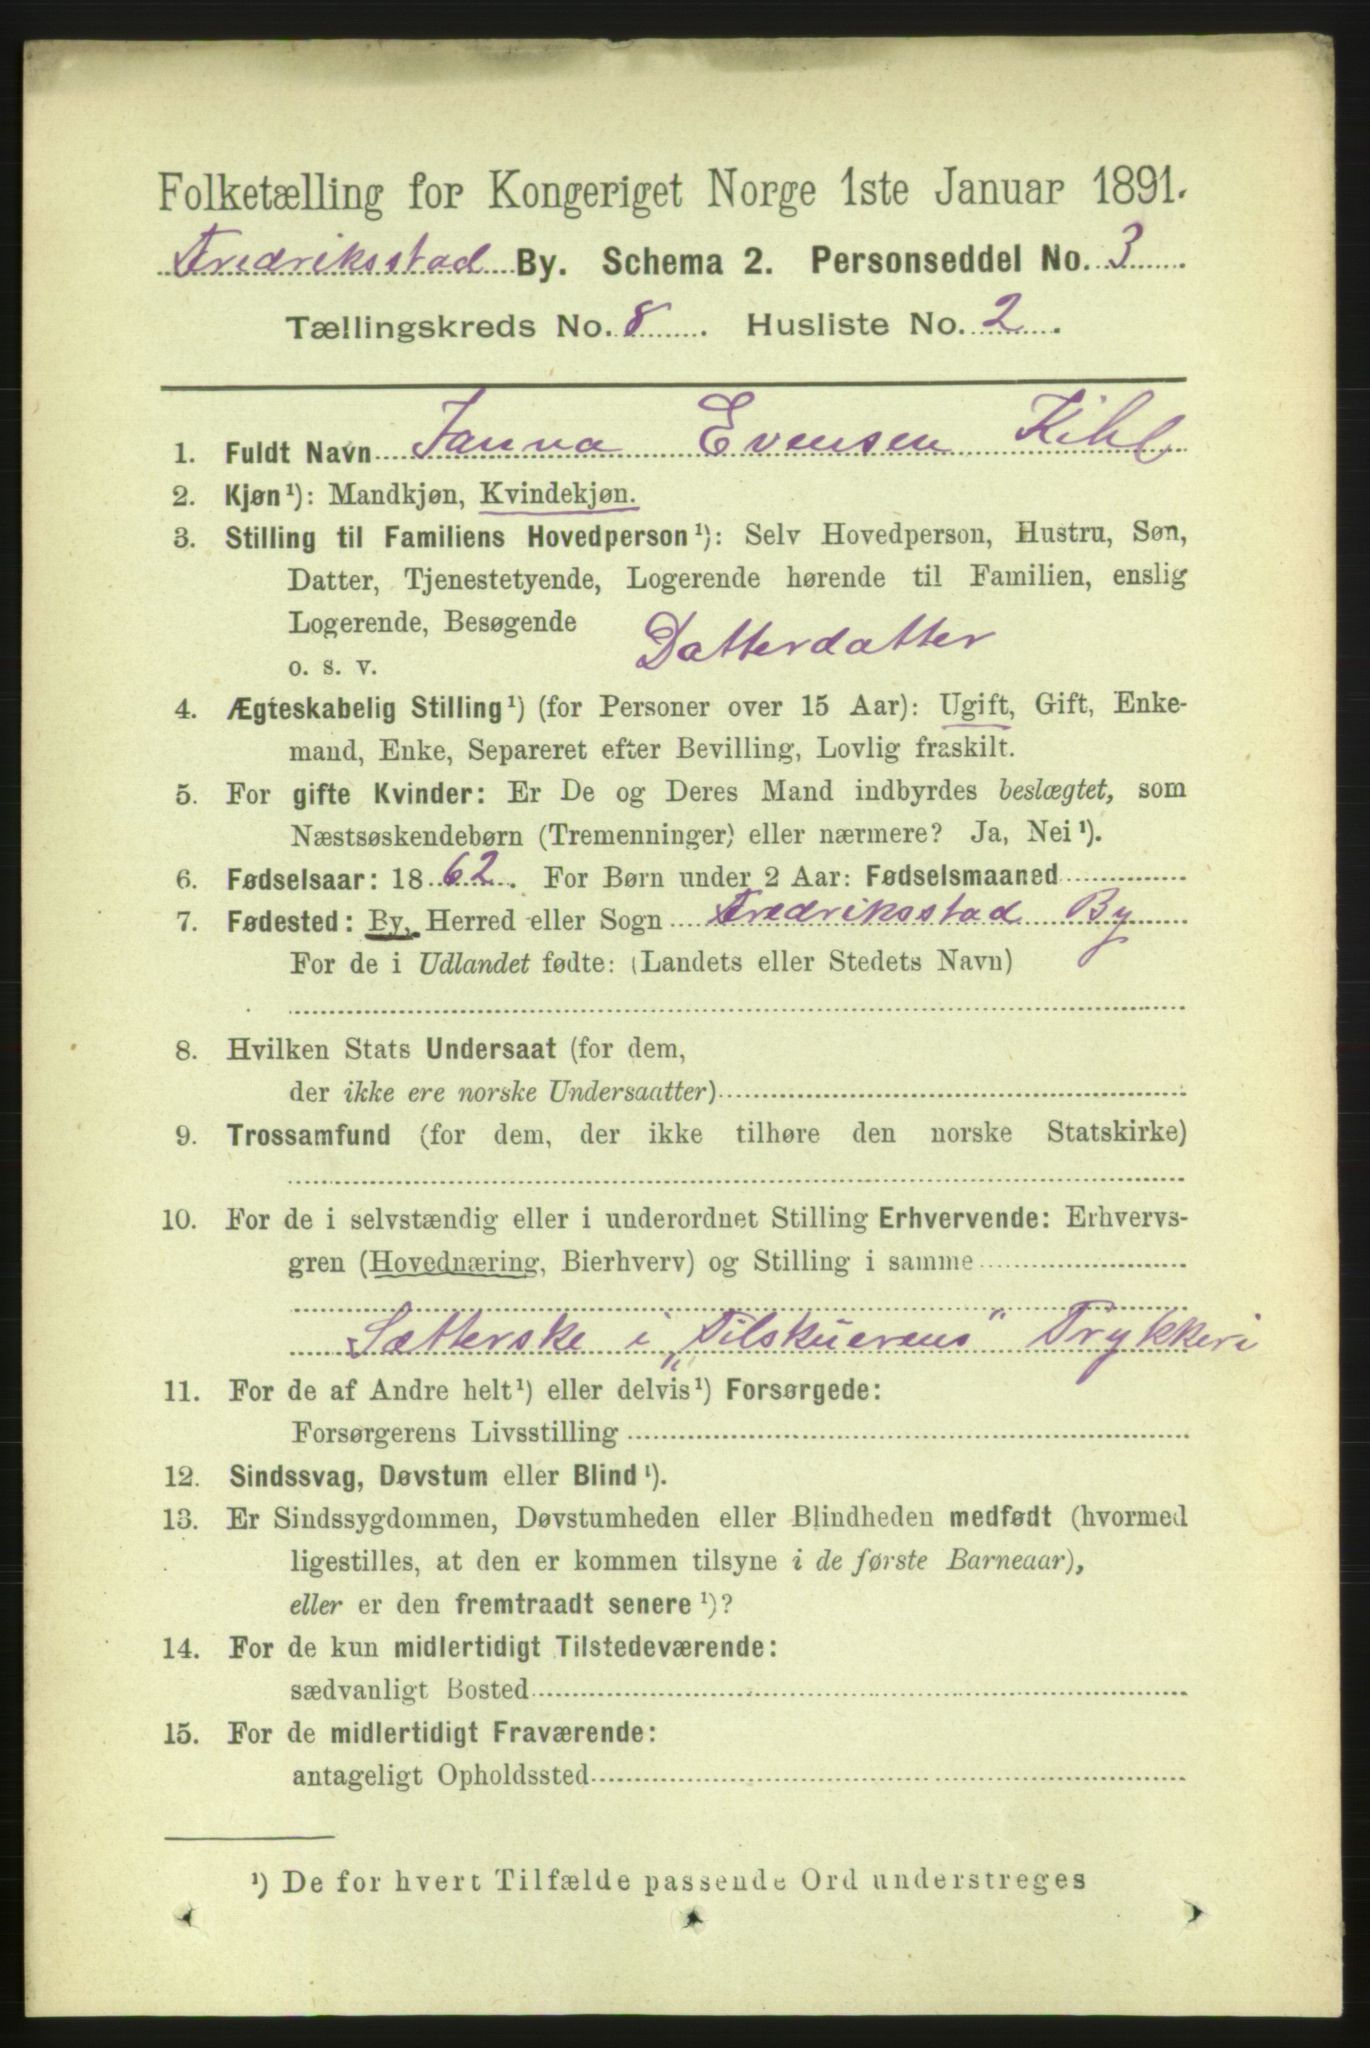 Folketælling for Kongeriget Norge 1ste Januar 1891.
Fredriksstad By. Schema 2. Personseddel No. 3
Tællingskreds No. 8. Husliste No. 2.
1. Fuldt Navn Janna Evensen Kihl
2. Kjøn¹): Mandkjøn, Kvindekjøn.
3. Stilling til Familiens Hovedperson¹): Selv Hovedperson, Hustru, Søn,
Datter, Tjenestetyende, Logerende hørende til Familien, enslig
Logerende, Besøgende
o. s. v. Datterdatter
4. Ægteskabelig Stilling¹) (for Personer over 15 Aar): Ugift, Gift, Enke-
mand, Enke, Separeret efter Bevilling, Lovlig fraskilt.
5. For gifte Kvinder: Er De og Deres Mand indbyrdes beslægtet, som
Næstsøskendebørn (Tremenninger) eller nærmere? Ja, Nei¹).
6. Fødselsaar: 1862. For Børn under 2 Aar: Fødselsmaaned
7. Fødested: By, Herred eller Sogn Fredriksstad By
For de i Udlandet fødte: (Landets eller Stedets Navn)
8. Hvilken Stats Undersaat (for dem,
der ikke ere norske Undersaatter)
9. Trossamfund (for dem, der ikke tilhøre den norske Statskirke)
10. For de i selvstændig eller i underordnet Stilling Erhvervende: Erhvervs-
gren (Hovednæring, Bierhverv) og Stilling i samme
Sætterske i „Tilskuerens“ Trykkeri
11. For de af Andre helt¹) eller delvis¹) Forsørgede:
Forsørgerens Livsstilling
12. Sindssvag, Døvstum eller Blind¹).
13. Er Sindssygdommen, Døvstumheden eller Blindheden medfødt (hvormed
ligestilles, at den er kommen tilsyne i de første Barneaar),
eller er den fremtraadt senere¹)?
14. For de kun midlertidigt Tilstedeværende:
sædvanligt Bosted
15. For de midlertidigt Fraværende:
antageligt Opholdssted
¹) De for hvert Tilfælde passende Ord understreges